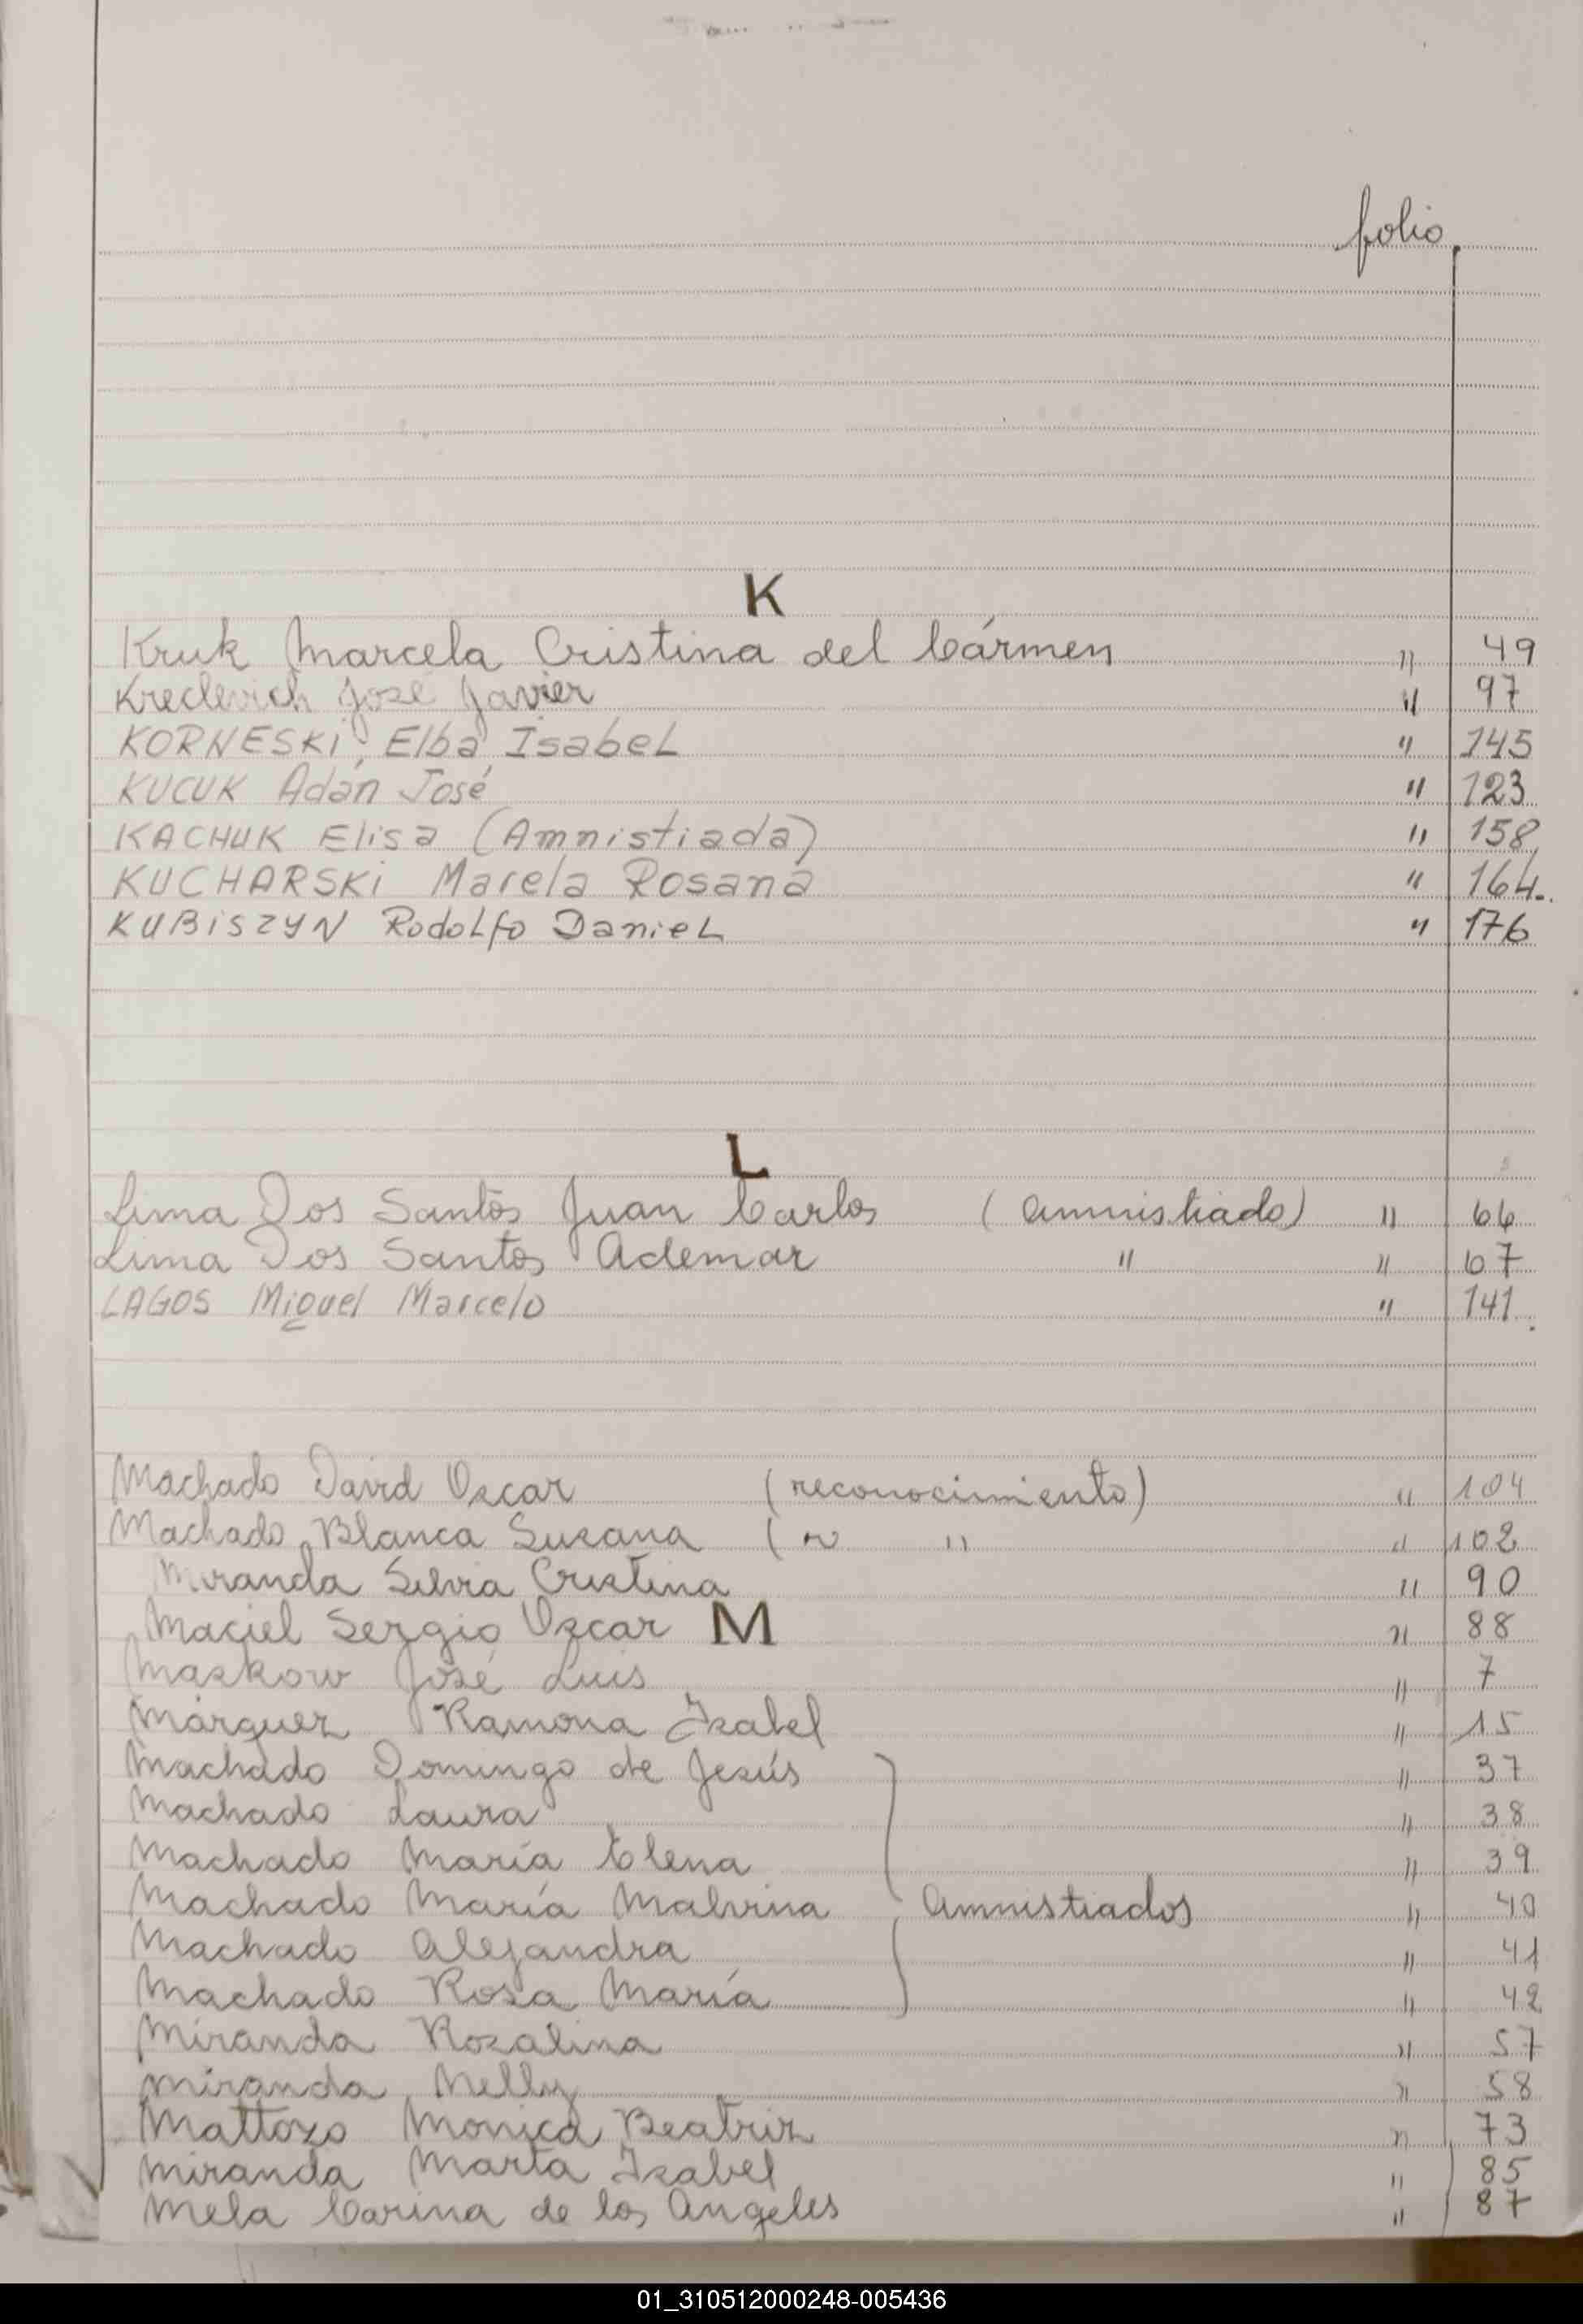 folio
K
Kruk Marcela Cristina del Cármen " 49
Kreclevich José Javier " 97
KORNESKI, Elba Isabel " 145
KUCUK Adán José " 123
KACHUK Elisa (Amnistiada) " 158
KUCHARSKI Marela Rosana " 164.
KUBISZYN Rodolfo Daniel " 176
L
Lima Dos Santos Juan Carlos (amnistiado) " 66
Lima Dos Santos Ademar " " 67
LAGOS Miguel Marcelo " 141
Machado David Oscar (reconocimiento) " 104
Machado Blanca Susana ( " " " 102
Miranda Silvia Cristina " 90
Maciel Sergio Oscar " 88
M
Maskow José Luis " 7
Márquez Ramona Isabel " 15
Machado Domingo de Jesús " 37
Machado Laura " 38
Machado María Elena " 39
Machado María Malvina Amnistiados " 40
Machado Alejandra " 41
Machado Rosa María " 42
Miranda Rosalina " 57
Miranda Nelly " 58
Mattozo Monica Beatriz " 73
Miranda Marta Isabel " 85
Mela Carina de los Angeles " 87
01_310512000248-005436